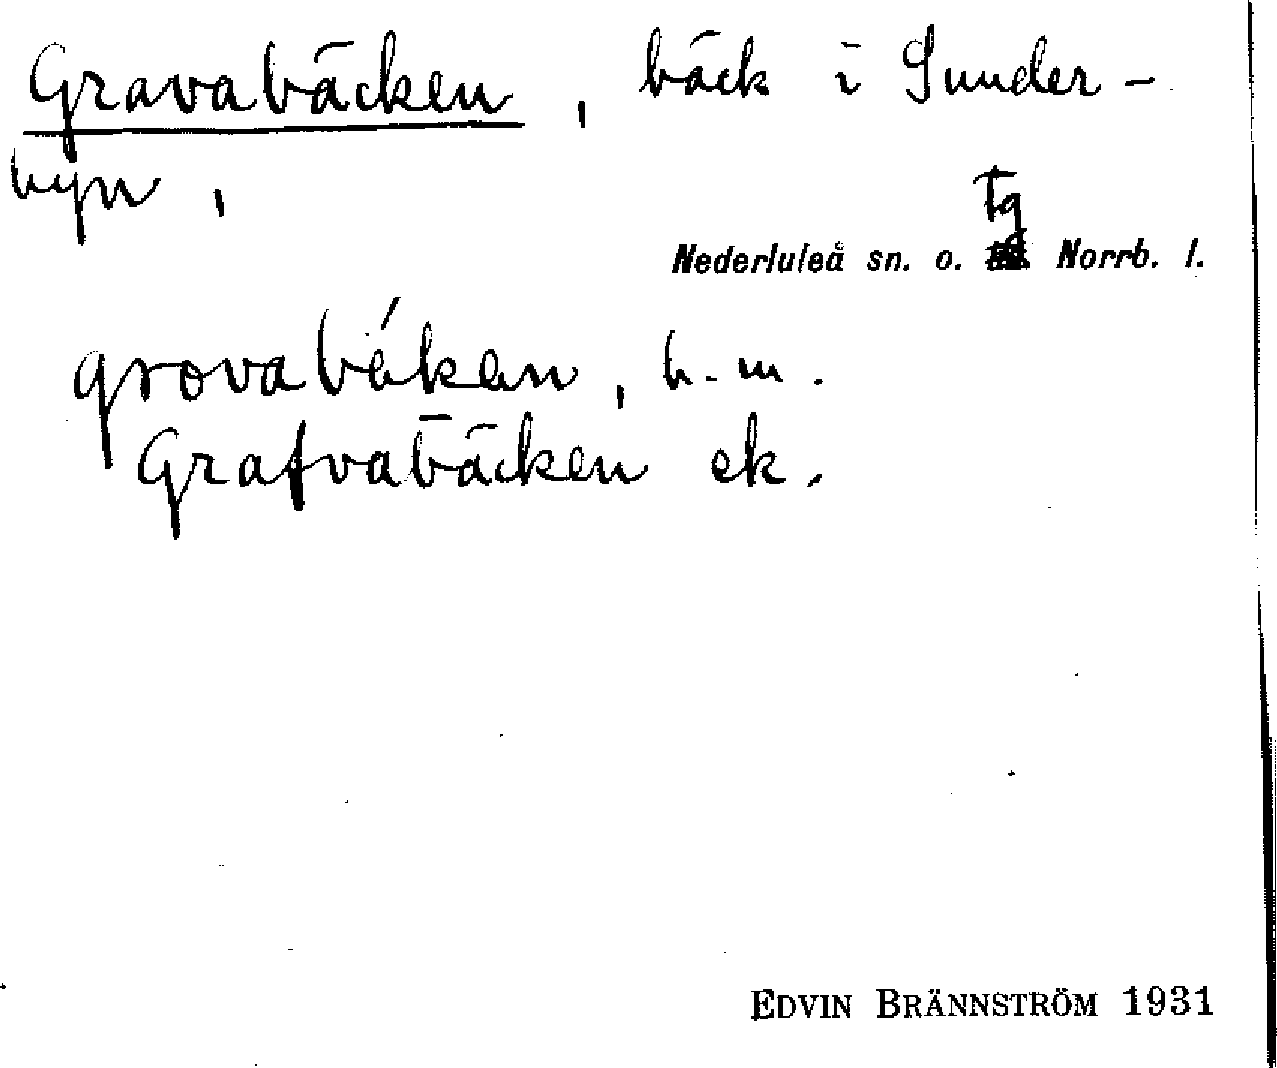 Gravabäcken, bäck i Sunder-
byn,
tg
Nederluleå sn. o. Norrb. l.
grovabä́kan, h.m.
Grafvabäcken ek.
EDVIN BRÄNNSTRÖM 1931